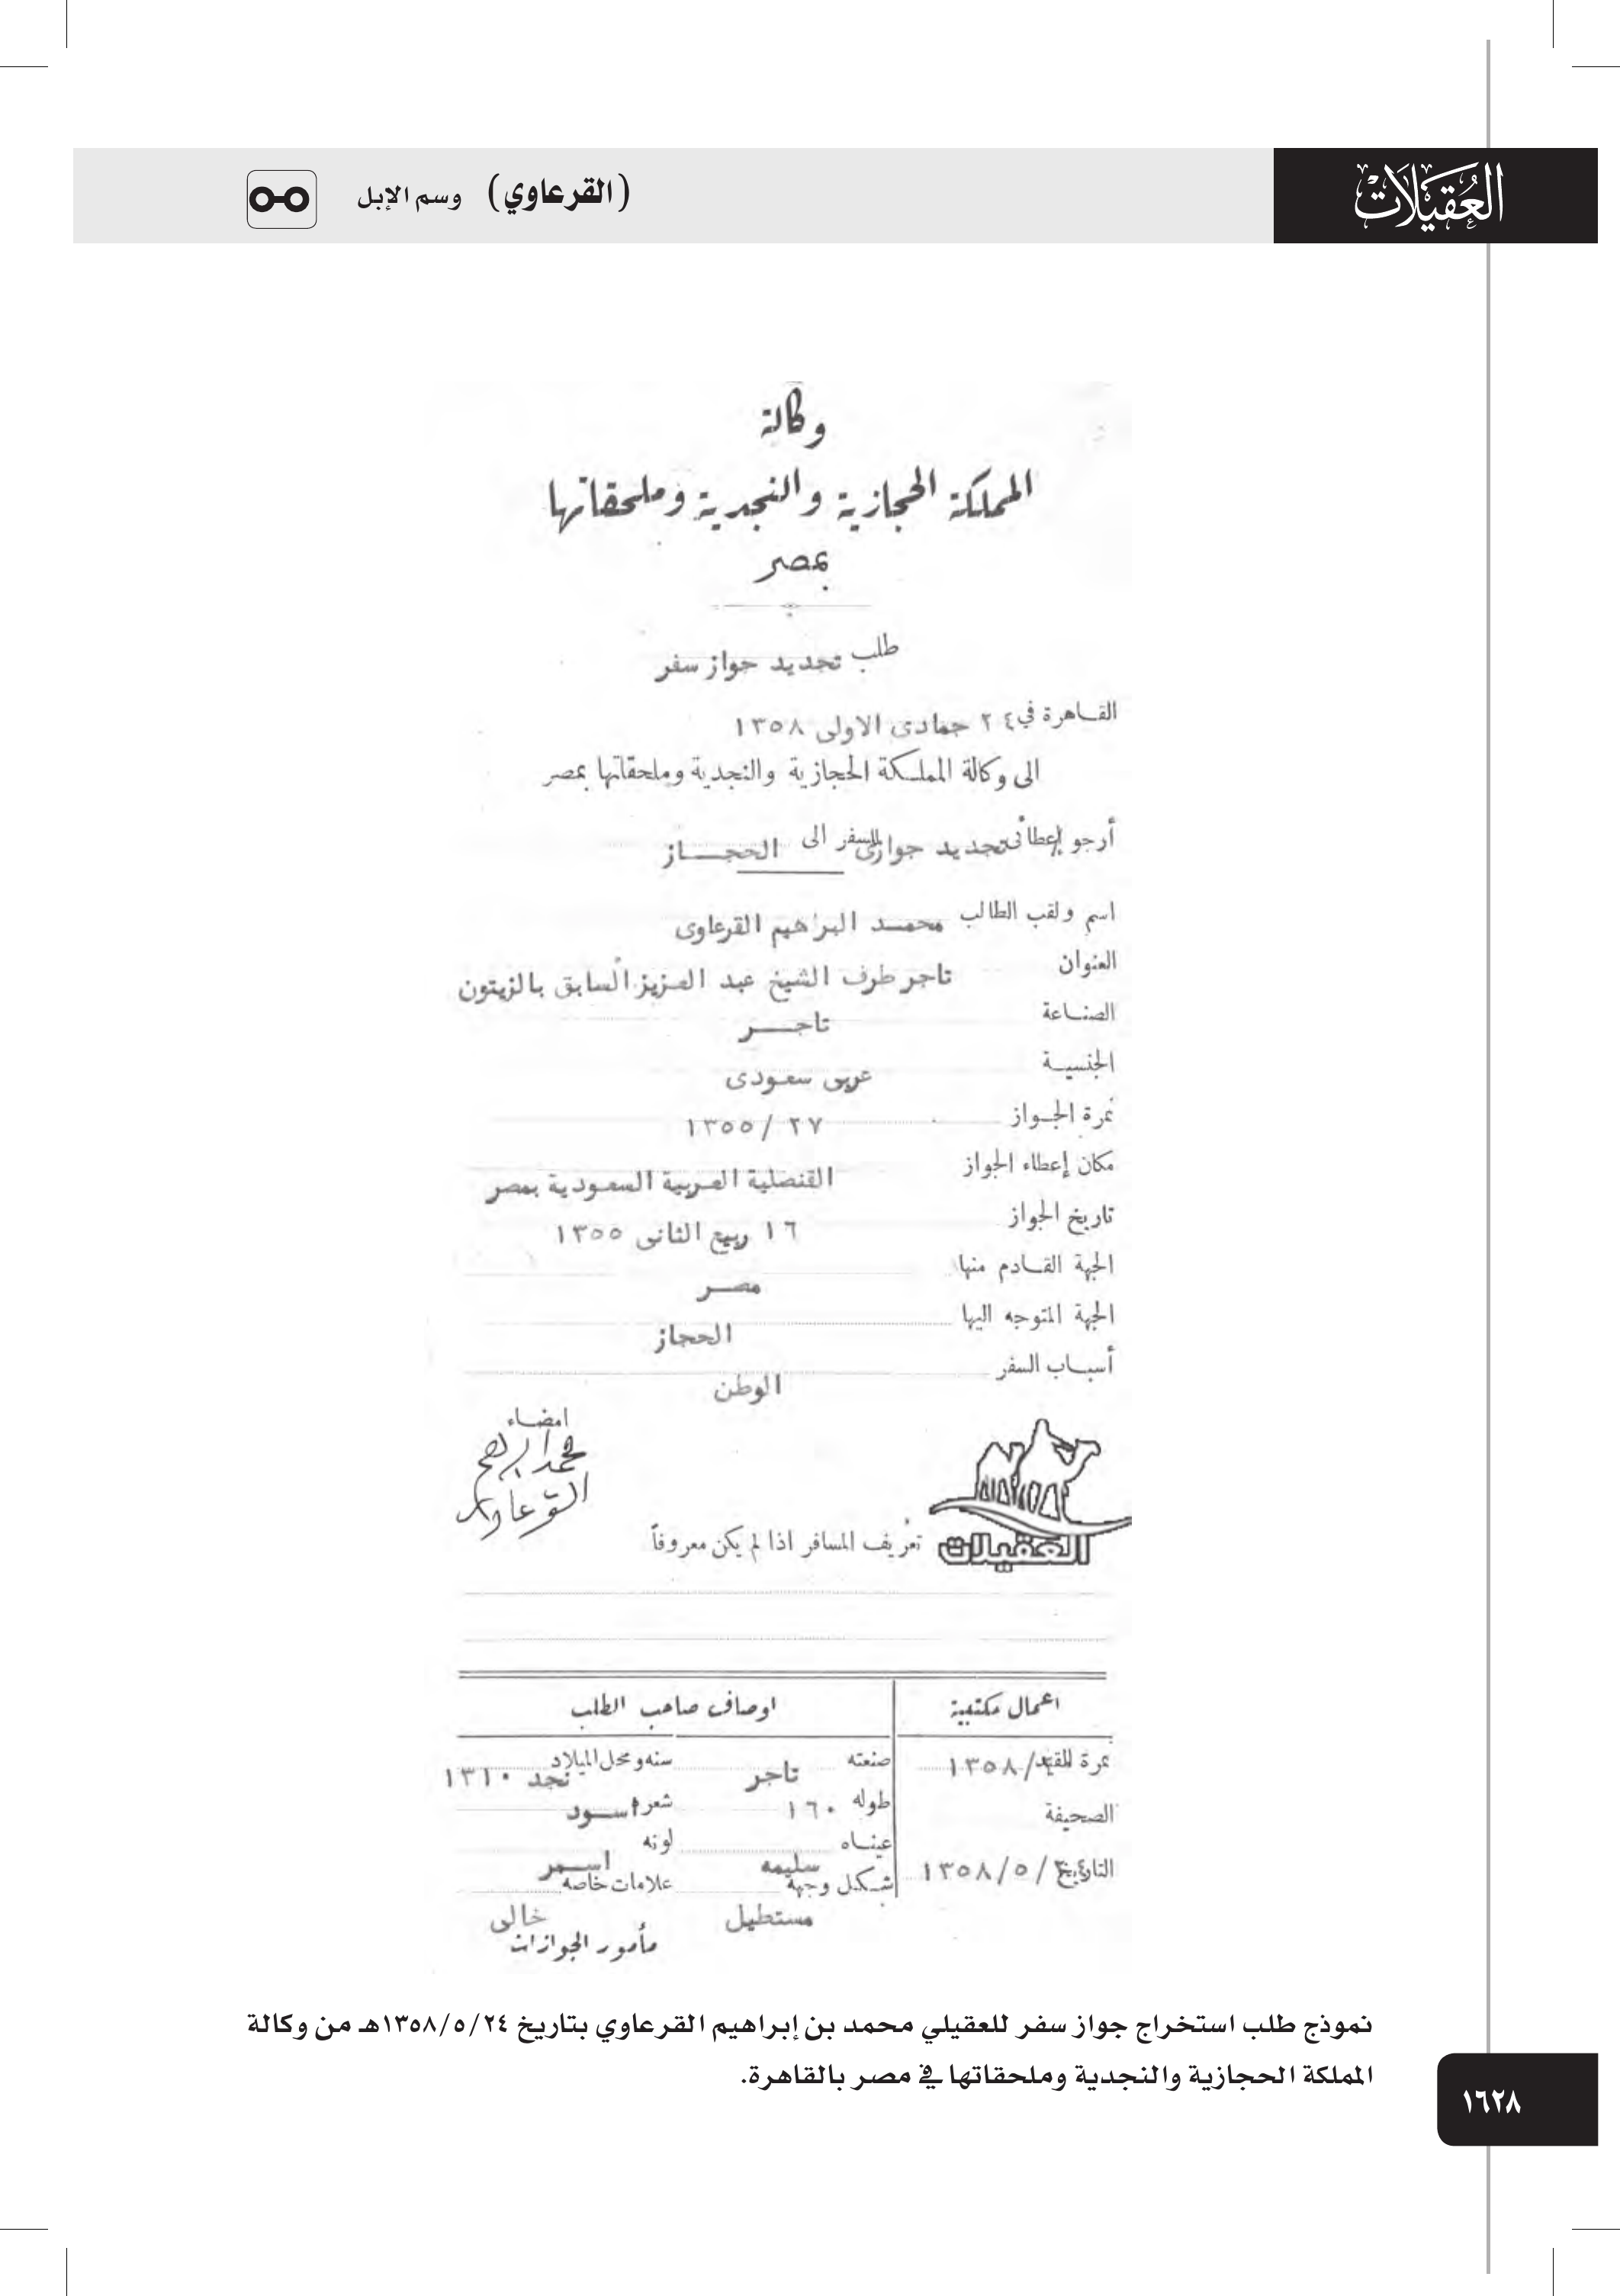 العقيلات
(القرعاوي) وسم الإبل
وكالة
المملكة الحجازية والنجدية وملحقاتها
بمصر
طلب تجديد جواز سفر
القاهرة في ٢٤ جمادى الاولى ١٣٥٨
الى وكالة المملكة الحجازية والنجدية وملحقاتها بمصر
أرجو إعطائى تجديد جوازى للسفر الى الحجاز
اسم ولقب الطالب محمد البراهيم القرعاوى
العنوان تاجر طرف الشيخ عبد العزيز السابق بالزيتون
الصناعة تاجر
الجنسية عربى سعودى
نمرة الجواز ٢٧ / ١٣٥٥
مكان إعطاء الجواز القنصلية العربية السعودية بمصر
تاريخ الجواز ١٦ ربيع الثانى ١٣٥٥
الجهة القادم منها مصر
الجهة المتوجه اليها الحجاز
أسباب السفر الوطن
امضاء
محمد البراهيم
القرعاوي
العقيلات
تعريف المسافر اذا لم يكن معروفاً
اعمال مكتبية اوصاف صاحب الطلب
نمرة القيد /١٣٥٨ صنعته تاجر سنه ومحل الميلاد نجد ١٣١٠
الصحيفة طوله ١٦٠ شعره اسود
عيناه سليمه لونه اسمر
التاريخ /٥/١٣٥٨ شكل وجهه مستطيل علامات خاصه خالى
مأمور الجوازات
نموذج طلب استخراج جواز سفر للعقيلي محمد بن إبراهيم القرعاوي بتاريخ ١٣٥٨/٥/٢٤هـ من وكالة
المملكة الحجازية والنجدية وملحقاتها في مصر بالقاهرة.
١٦٢٨